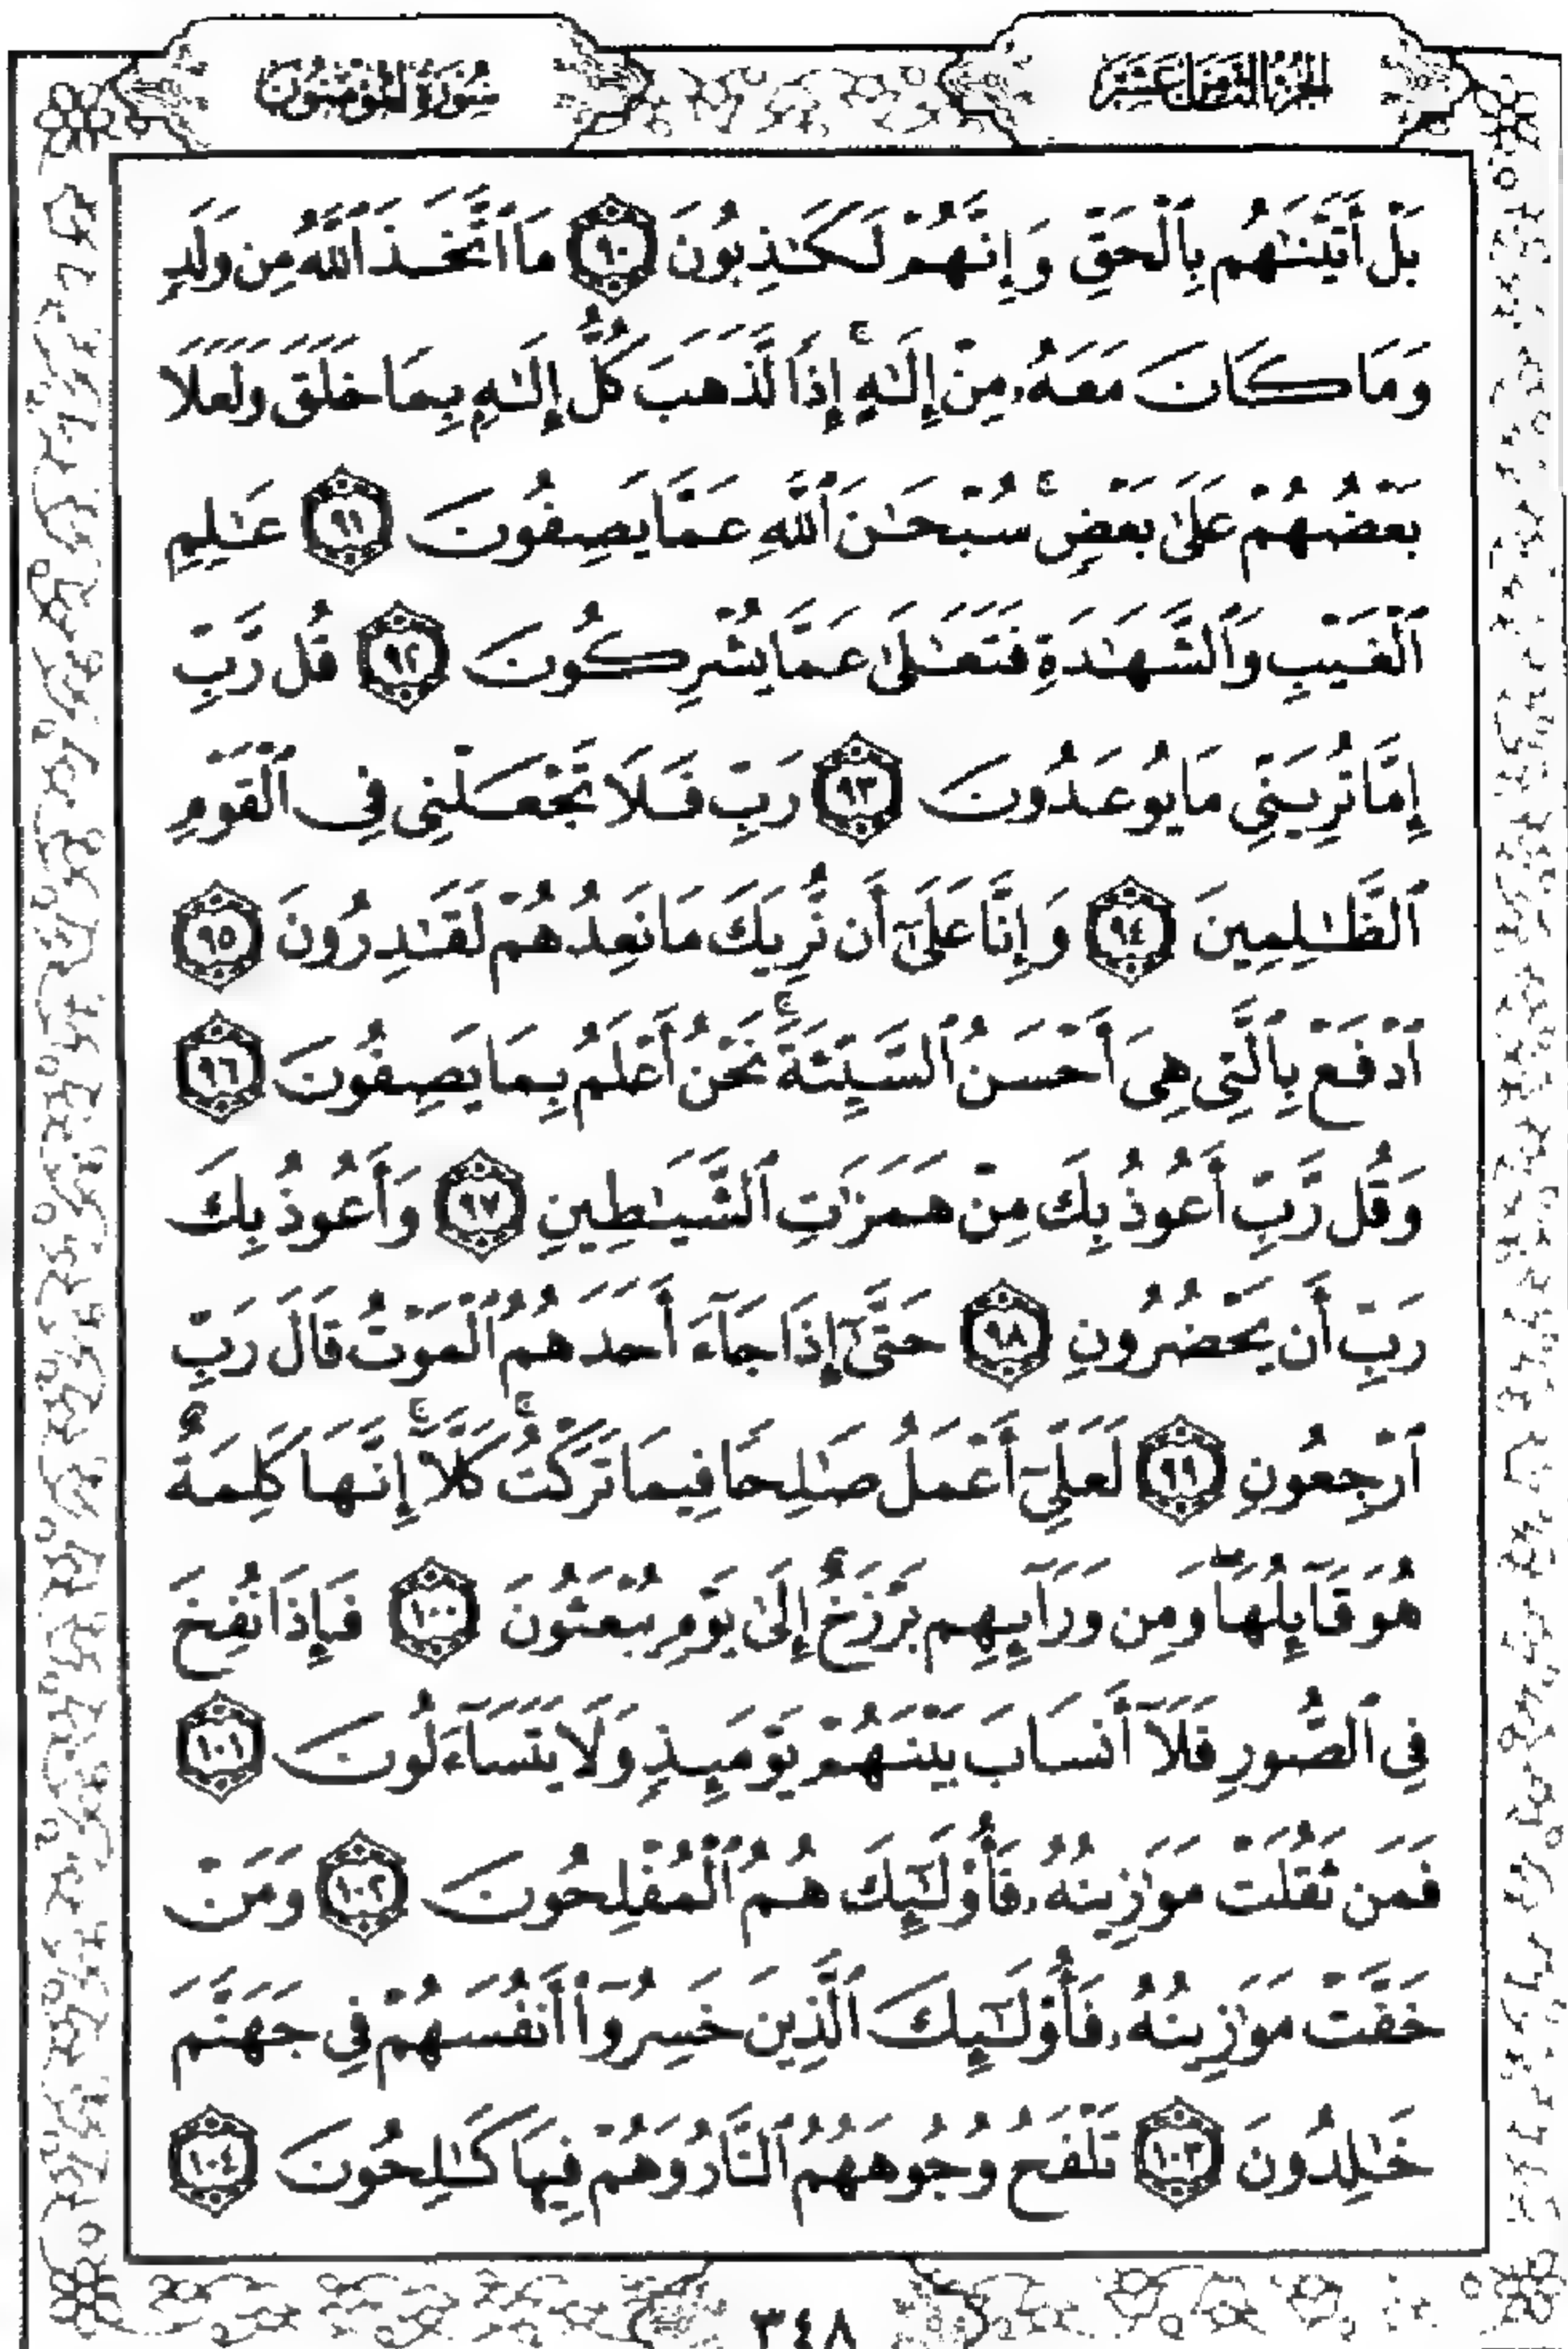 الجزء الثامن عشر
سورة المؤمنون
بَلْ أَتَيْنَٰهُم بِٱلْحَقِّ وَإِنَّهُمْ لَكَٰذِبُونَ ٩٠ مَا ٱتَّخَذَ ٱللَّهُ مِن وَلَدٍ
وَمَا كَانَ مَعَهُۥ مِنْ إِلَٰهٍ ۚ إِذًا لَّذَهَبَ كُلُّ إِلَٰهٍ بِمَا خَلَقَ وَلَعَلَا
بَعْضُهُمْ عَلَىٰ بَعْضٍ ۚ سُبْحَٰنَ ٱللَّهِ عَمَّا يَصِفُونَ ٩١ عَٰلِمِ
ٱلْغَيْبِ وَٱلشَّهَٰدَةِ فَتَعَٰلَىٰ عَمَّا يُشْرِكُونَ ٩٢ قُل رَّبِّ
إِمَّا تُرِيَنِّي مَا يُوعَدُونَ ٩٣ رَبِّ فَلَا تَجْعَلْنِي فِي ٱلْقَوْمِ
ٱلظَّٰلِمِينَ ٩٤ وَإِنَّا عَلَىٰٓ أَن نُّرِيَكَ مَا نَعِدُهُمْ لَقَٰدِرُونَ ٩٥
ٱدْفَعْ بِٱلَّتِي هِيَ أَحْسَنُ ٱلسَّيِّئَةَ ۚ نَحْنُ أَعْلَمُ بِمَا يَصِفُونَ ٩٦
وَقُل رَّبِّ أَعُوذُ بِكَ مِنْ هَمَزَٰتِ ٱلشَّيَٰطِينِ ٩٧ وَأَعُوذُ بِكَ
رَبِّ أَن يَحْضُرُونِ ٩٨ حَتَّىٰٓ إِذَا جَآءَ أَحَدَهُمُ ٱلْمَوْتُ قَالَ رَبِّ
ٱرْجِعُونِ ٩٩ لَعَلِّيٓ أَعْمَلُ صَٰلِحًا فِيمَا تَرَكْتُ ۚ كَلَّآ ۚ إِنَّهَا كَلِمَةٌ
هُوَ قَآئِلُهَا ۖ وَمِن وَرَآئِهِم بَرْزَخٌ إِلَىٰ يَوْمِ يُبْعَثُونَ ١٠٠ فَإِذَا نُفِخَ
فِي ٱلصُّورِ فَلَآ أَنسَابَ بَيْنَهُمْ يَوْمَئِذٍ وَلَا يَتَسَآءَلُونَ ١٠١
فَمَن ثَقُلَتْ مَوَٰزِينُهُۥ فَأُو۟لَٰٓئِكَ هُمُ ٱلْمُفْلِحُونَ ١٠٢ وَمَنْ
خَفَّتْ مَوَٰزِينُهُۥ فَأُو۟لَٰٓئِكَ ٱلَّذِينَ خَسِرُوٓا۟ أَنفُسَهُمْ فِي جَهَنَّمَ
خَٰلِدُونَ ١٠٣ تَلْفَحُ وُجُوهَهُمُ ٱلنَّارُ وَهُمْ فِيهَا كَٰلِحُونَ ١٠٤
٣٤٨